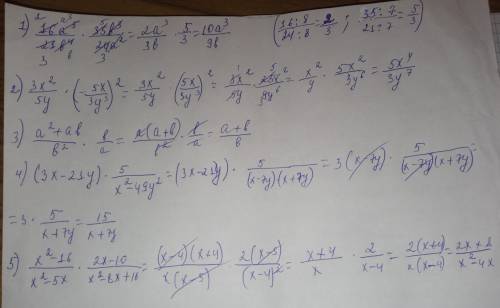 1) \frac{16a^5}{23b^4} \cdot \frac{35b^3}{24a^2} = \frac{2a^3}{3b} \cdot \frac{5}{3} = \frac{10a^3}{9b} \left( \frac{16:8}{24:8} = \frac{2}{3} ; \frac{35:7}{21:7} = \frac{5}{3} \right)
2) \frac{3x^2}{5y} \cdot \left( -\frac{5x}{3y^3} \right)^2 = \frac{3x^2}{5y} \cdot \left( \frac{5x}{3y^3} \right)^2 = \frac{3x^2}{5y} \cdot \frac{25x^2}{9y^6} = \frac{x^2}{y} \cdot \frac{5x^2}{3y^6} = \frac{5x^4}{3y^7}
3) \frac{a^2+ab}{b^2} \cdot \frac{b}{a} = \frac{a(a+b)}{b^2} \cdot \frac{b}{a} = \frac{a+b}{b}
4) (3x-21y) \cdot \frac{5}{x^2-49y^2} = (3x-21y) \cdot \frac{5}{(x-7y)(x+7y)} = 3(x-7y) \cdot \frac{5}{(x-7y)(x+7y)} =
= 3 \cdot \frac{5}{x+7y} = \frac{15}{x+7y}
5) \frac{x^2-16}{x^2-5x} \cdot \frac{2x-10}{x^2-8x+16} = \frac{(x-4)(x+4)}{x(x-5)} \cdot \frac{2(x-5)}{(x-4)^2} = \frac{x+4}{x} \cdot \frac{2}{x-4} = \frac{2(x+4)}{x(x-4)} = \frac{2x+8}{x^2-4x}